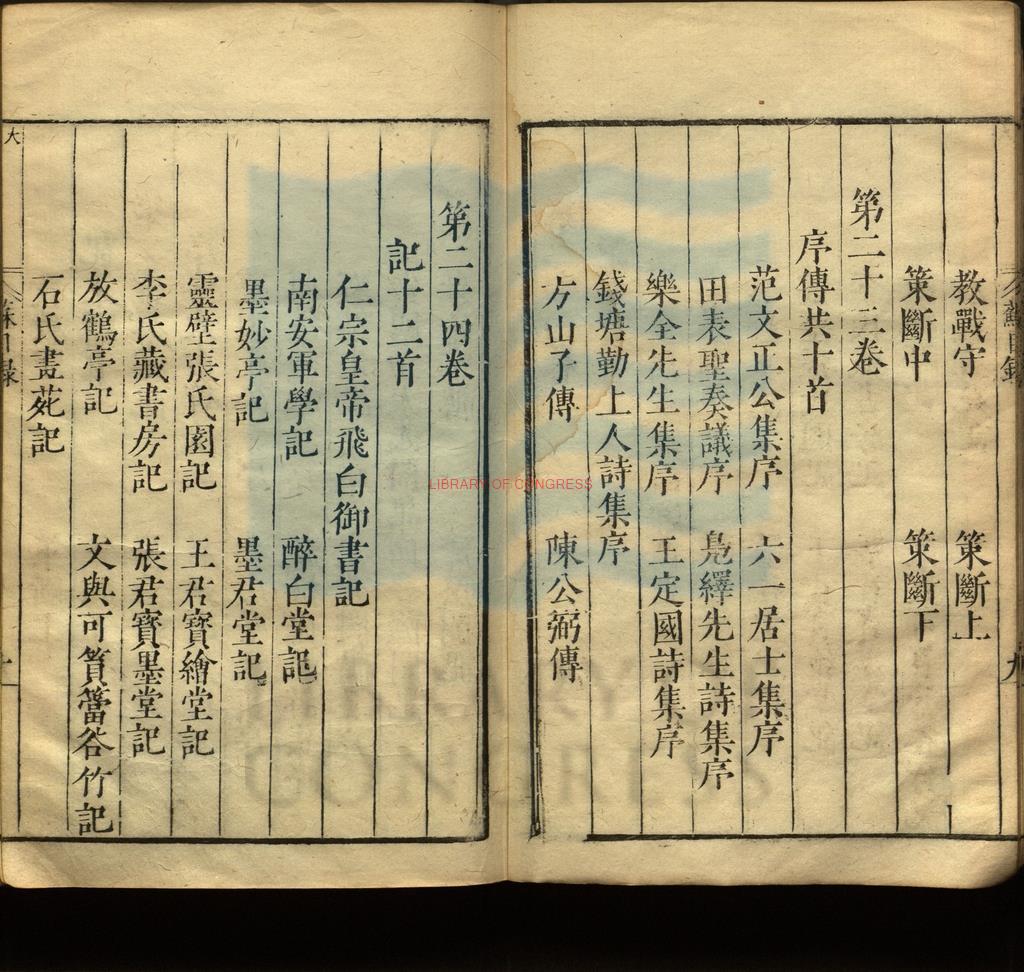 教戰守 策斷上
策斷中 策斷下
第二十三卷
序傳共十首
范文正公集序 六一居士集序
田表聖奏議序 鳧繹先生詩集序
樂全先生集序 王定國詩集序
錢塘勤上人詩集序
方山子傳 陳公弼傳
第二十四卷
記十二首
仁宗皇帝飛白御書記
南安軍學記 醉白堂記
墨妙亭記 墨君堂記
靈壁張氏園記 王君寶繪堂記
李氏藏書房記 張君寶墨堂記
放鶴亭記 文與可篔簹谷竹記
石氏畫苑記
LIBRARY OF CONGRESS